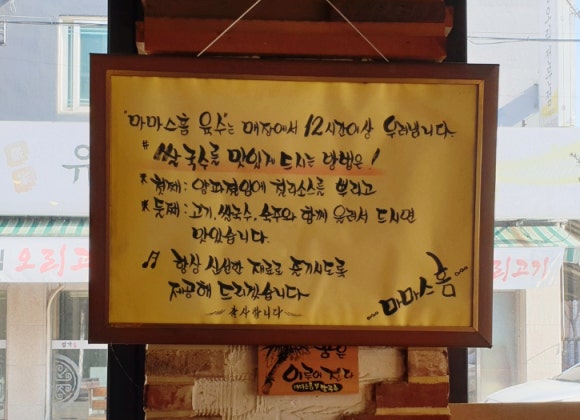 "마마스홈 육수"는 매장에서 12시간이상 우려냅니다.
# 쌀국수를 맛있게 드시는 방법은!
* 첫째: 양파절임에 칠리소스를 뿌리고
* 둘째: 고기, 쌀국수, 숙주와 함께 올려서 드시면
맛있습니다.
♬ 항상 신선한 재료로 즐기시도록
제공해 드리겠습니다
감사합니다
마마스홈
오리고
리고기